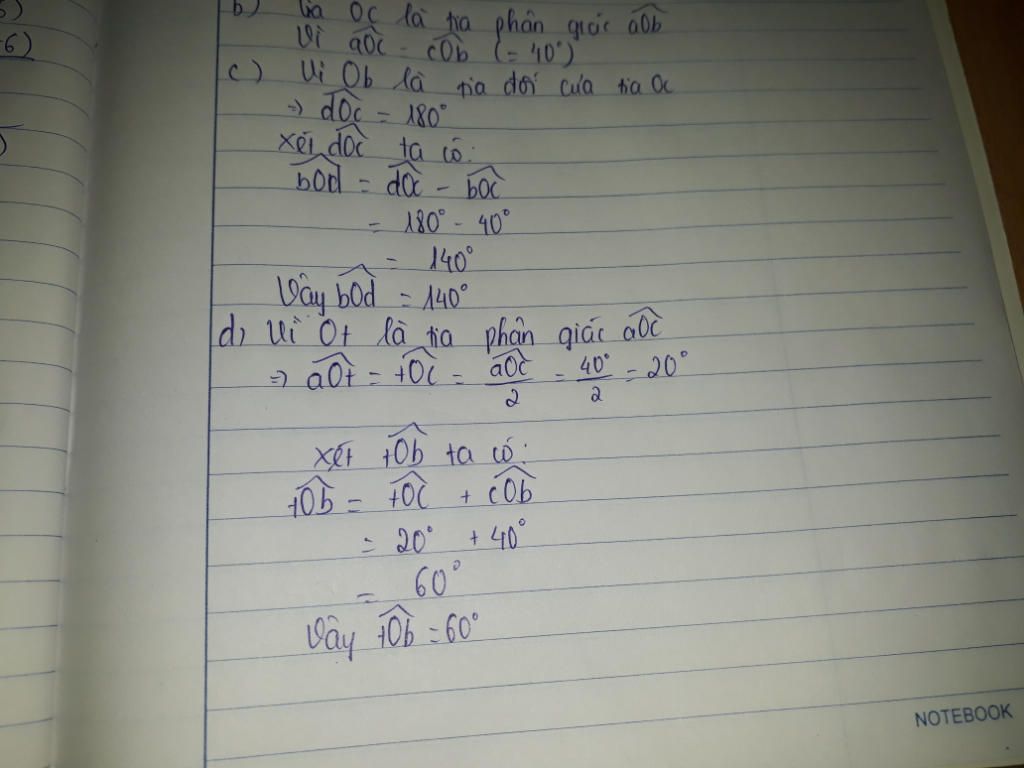 5)
-6)
)
b) Tia Oc là tia phân giác aOb
Vì aOc = cOb (= 40°)
c) Vì Ob là tia đối của tia Oc
=> dOc = 180°
xét dOc ta có:
bOd = dOc - bOc
= 180° - 40°
= 140°
Vậy bOd = 140°
d) Vì Ot là tia phân giác aOc
=> aOt = tOc = aOc/2 = 40°/2 = 20°
xét tOb ta có:
tOb = tOc + cOb
= 20° + 40°
= 60°
Vậy tOb = 60°
NOTEBOOK